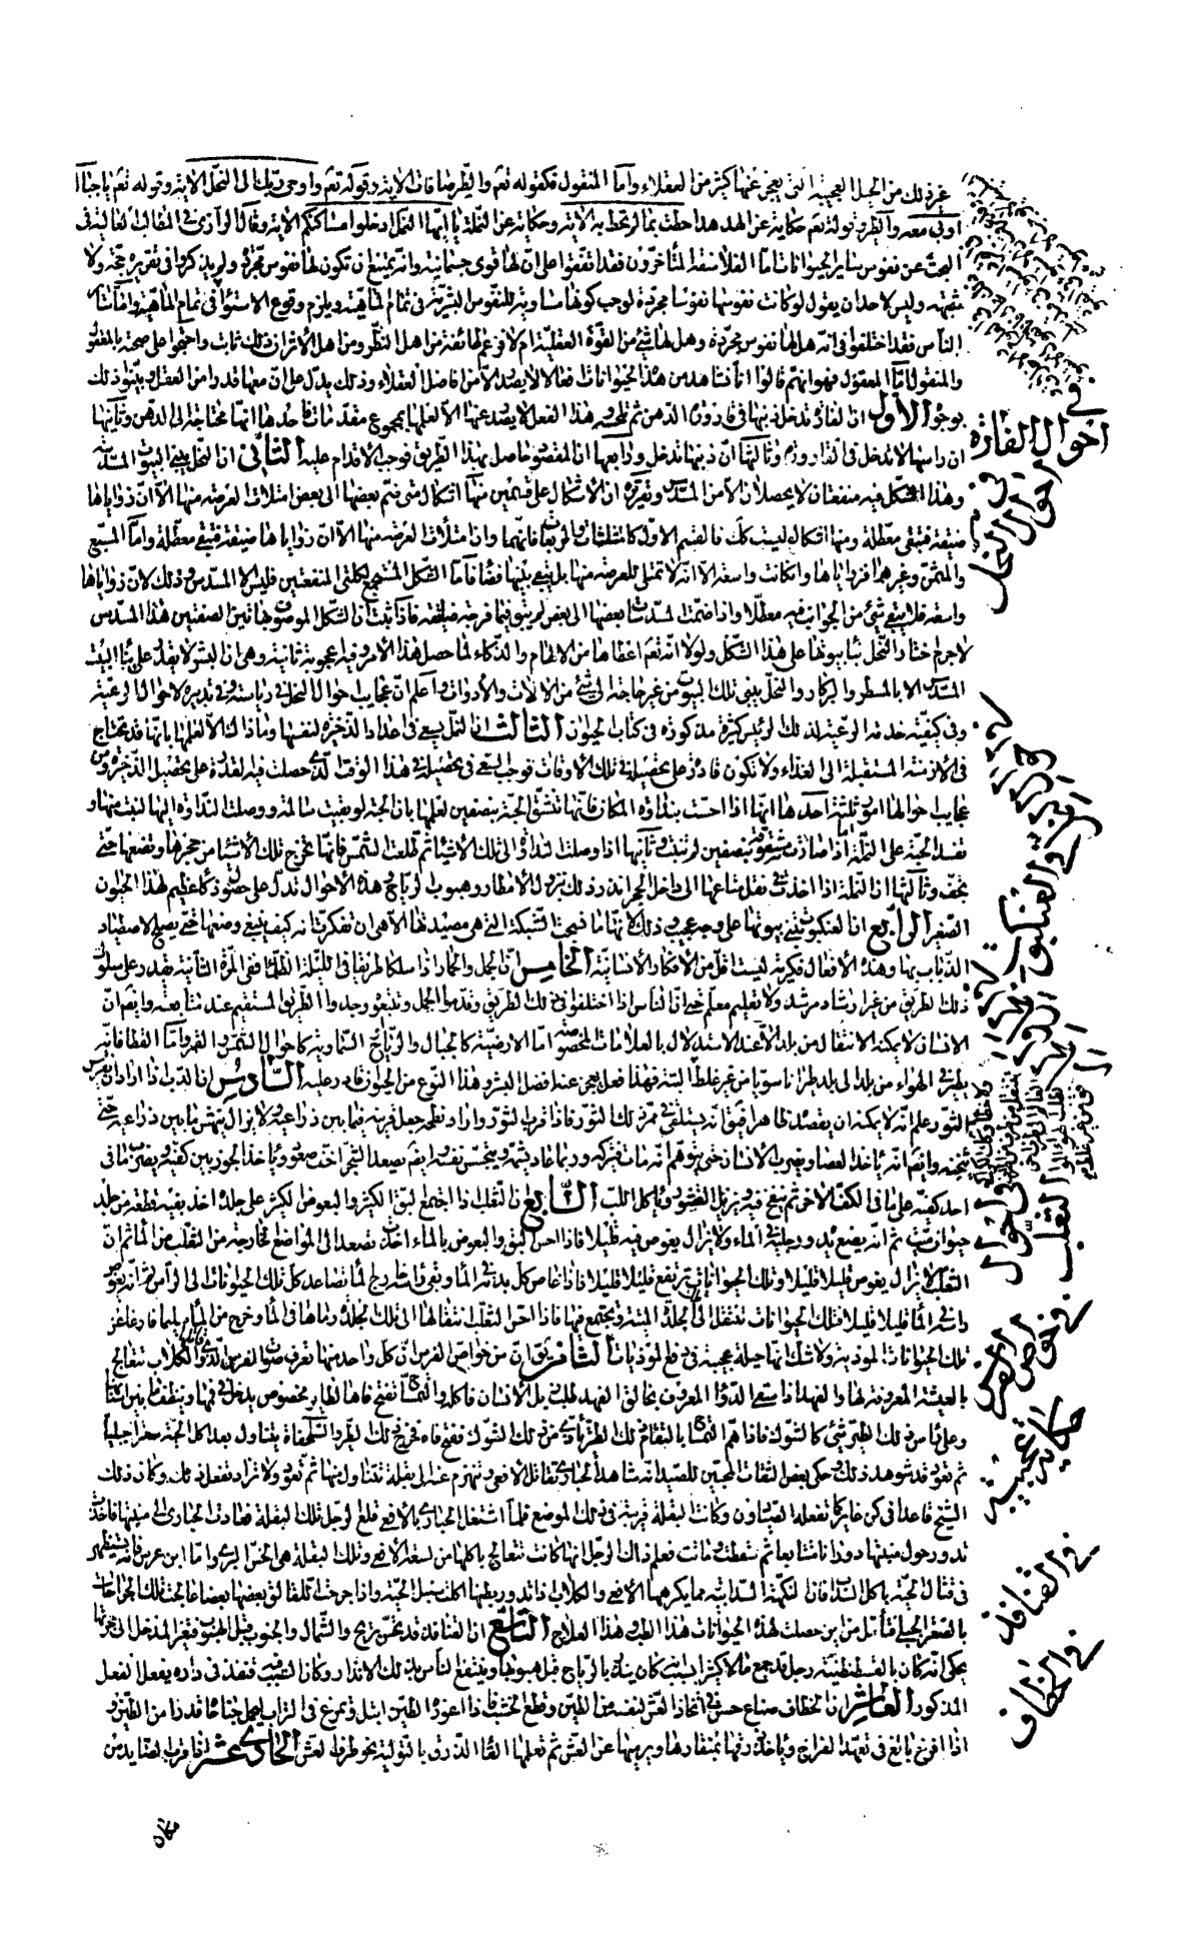 غير ذلك من الحيل العجيبة التي يعجز عنها كثير من العقلاء واما المنقول فكقوله تعم والطير صافات الآية وقوله تعم واوحى ربك الى النحل الآية وقوله تعم يا جبال
اوبي معه والطير وقوله تعم حكاية عن الهدهد احطت بما لم تحط به الآية وحكاية عن النملة يا ايها النمل ادخلوا مساكنكم الآية وقال الرازي في المطالب العالية في
البحث عن نفوس سائر الحيوانات اما الفلاسفة المتأخرون فقد اتفقوا على ان لها قوى جسمانية وانه يمتنع ان تكون لها نفوس مجردة ولم يذكروا في تقريره حجة ولا
شبهة وليس لاحد ان يقول لو كانت نفوسها نفوسا مجردة لوجب كونها مساوية للنفوس البشرية في تمام الماهية ويلزم وقوع الاستواء في تمام الماهية واما سائر
الناس فقد اختلفوا في انه هل لها نفوس مجردة وهل لها شيء من القوة العقلية ام لا فزعم طائفة من اهل النظر ومن اهل الاثر ان ذلك ثابت واحتجوا على صحته بالمعقول
والمنقول اما المعقول فهو انهم قالوا انا نشاهد من هذه الحيوانات افعالا لا يصدر الا من افاضل العقلاء وذلك يدل على ان معها قدرا من العقل وبينوا ذلك
بوجوه الاول ان الفارة تدخل ذنبها في قارورة الدهن ثم تلحسه هذا الفعل لا يصدر عنها الا لعلمها بمجموع مقدمات فاحدها انها محتاجة الى الدهن وثانيها
ان راسها لا تدخل في القارورة وثالثها ان ذنبها تدخل ورابعها ان المقصود حاصل بهذا الطريق فوجب الاقدام عليه الثاني ان النحل يبني البيوت المسدسة
وهذا الشكل فيه منفعتان لا يحصلان الا من المسدس وتقريره ان الاشكال على قسمين منها اشكال متى ضم بعضها الى بعض امتلات العرصة منها الا ان زواياها
ضيقة فتبقى معطلة ومنها اشكال ليست كك فالقسم الاول كالمثلثات والمربعات فانهما وان امتلأت العرصة منها الا ان زواياها ضيقة فتبقى معطلة واما المسبع
والمثمن وغيرهما فزواياها وان كانت واسعة الا انه لا تمتلى العرصة منها بل يبقى بينها فضاء فاما الشكل المستجمع لكلتي المنفعتين فليس الا المسدس وذلك لان زواياها
واسعة فلا يبقى شيء من الجوانب فيه معطلا واذا ضمت المسدسات بعضها الى بعض لم يبق فيما فرجة ضائعة فاذا ثبت ان الشكل الموصوف بهاتين الصفتين هذا المسدس
لا جرم اختار النحل بناء بيوتها على هذا الشكل ولولا انه تعم اعطاها من الالهام والذكاء لما حصل هذا الامر وفيه اعجوبة ثانية وهي ان البشر لا يقدر على بناء البيت
المسدس الا بالمسطر والبركار والنحل يبني تلك البيوت من غير حاجة الى شيء من الآلات والأدوات واعلم ان عجايب احوال النحل في رياسته وفي تدبيره لاحوال الرعية
وفي كيفية خدمة الرعية لذلك الرئيس كثيرة مذكورة في كتاب الحيوان الثالث ان النمل يسعى في اعداد الذخيرة لنفسها وماذاك الا لعلمها بانها قد تحتاج
في الازمنة المستقبلة الى الغذاء ولا تكون قادرة على تحصيله في تلك الاوقات فوجب السعي في تحصيله في هذا الوقت الذي حصلت فيه القدرة على تحصيل الذخيرة ومن
عجايب احوالها امور ثلثة احدها انها اذا احست بنداوة المكان فانها تشق الحبة بنصفين لعلمها بان الحبة لو بقيت سالمة ووصلت النداوة اليها لنبتت منها و
تفسد الحبة على النملة اما اذا صارت مشقوقة بنصفين لم تنبت وثانيها اذا وصلت النداوة الى تلك الأشياء ثم طلعت الشمس فانها تخرج تلك الأشياء من حجرها وتضعها حتى
تجف وثالثها ان النملة اذا اخذت في نقل متاعها الى داخل الجحر انذر ذلك بنزول الأمطار وهبوب الرياح وهذه الأحوال تدل على حصول ذكاء عظيم لهذا الحيوان
الصغير الرابع ان العنكبوت تبني بيوتها على وجه عجيب وذلك لانها ما نسجت الشبكة التي هي مصيدتها الا هي ان تفكرت انه كيف ينبغي وضعها حتى يصلح لاصطياد
الذباب بها وهذه الأفعال فكرية ليست اقل من الأفكار الأنسانية الخامس ان الجمل والحمار اذا سلكا طريقا في الليلة الظلماء ففي المرة الثانية يقدر على سلوك
ذلك الطريق من غير ارشاد مرشد ولا تعليم معلم حتى ان الناس اذا اختلفوا في ذلك الطريق وقدموا الجمل وتتبعوه وجدوا الطريق المستقيم عند متابعته وايضا ان
الانسان لا يمكنه الانتقال من بلد الى بلد الا عند الاستدلال بالعلامات المخصوصة اما الارضية كالجبال والرياح او السماوية كاحوال الشمس والقمر واما القطا فانه
يطير في الهواء من بلد الى بلد طيرانا سويا من غير غلط البتة فهذا فعل يعجز عنه افضل البشر وهذا النوع من الحيوان قادر عليه السادس ان الدب اذا اراد ان يفترس
الثور علم انه لا يمكنه ان يقصده ظاهرا فيقال انه يستلقي في ممر ذلك الثور فاذا قرب الثور واراد نطحه جعل قرنيه فيما بين ذراعيه ولا يزال ينهش ما بين ذراعيه حتى
يثخنه وايضا انه يأخذ العصا ويضرب الأنسان حتى يتوهم انه مات فيتركه وربما عاد يشمه ويتجسس نفسه وايضا يصعد الشجر اخف صعود ويأخذ الجوز بين كفيه ويضرب ما في
احد كفيه على ما في الكف الاخرى ثم ينفخ فيه ويزيل القشور ويأكل اللب السابع ان الثعلب اذا اجتمع البق الكثير والبعوض الكثير على جلده اخذ بفيه قطعة من جلد
حيوان ميت ثم انه يضع يديه ورجليه في الماء ولا يزال يغوص فيه قليلا قليلا فاذا احس البق والبعوض بالماء اخذت تصعد الى المواضع الخارجة من الثعلب من الماء ثم ان
الثعلب لا يزال يغوص قليلا قليلا وتلك الحيوانات ترتفع قليلا قليلا فاذا غاص كل بدنه في الماء وبقي راسه خارج الماء تصاعد كل تلك الحيوانات الى الراس ثم انه يغوص
راسه في الماء قليلا قليلا فتلك الحيوانات تنتقل الى الجلدة الميتة ويجتمع فيها فاذا احس الثعلب بانتقالها الى تلك الجلدة رماها في الماء وخرج من الماء سليما فارغا عن
تلك الحيوانات الموذية ولا شك انها حيلة عجيبة في دفع الموذيات الثامن يقال ان من خواص الفرس ان كل واحد منها يعرف صوت الفرس الذي قاتله والكلاب تتعالج
بالعيشة المعروفة لها والفهد اذا سقي الدواء المعروف بخانق الفهد طلب زبل الأنسان فاكله والتمساح تفتح فاها لطاير مخصوص يدخل في فيها وينظف ما بين اسنانها
وعلى راس ذلك الطير شيء كالشوك فاذا هم التمساح بالتقام ذلك الطير تأذى من ذلك الشوك فيفتح فاه فيخرج ذلك الطير والسلحفاة يتناول بعد اكل الحية سعترا جبليا
ثم تعود قد شوهد ذلك وحكى بعض الثقات المحبين للصيد انه شاهد الحبارى تقاتل الافعى وتنهزم عنه الى بقلة تتناول منها ثم تعود ولا تزال تفعل ذلك وكان ذلك
الشيخ قاعدا في كن غاير كما تفعله الصيادون وكانت البقلة قريبة في ذلك الموضع فلما اشتغل الحبارى بالافعى قلع الرجل تلك البقلة فعادت الحبارى الى منبتها فاخذت
تدور حول منبتها دورانا متتابعا ثم سقطت وماتت فعلم ذلك الرجل انها كانت تتعالج باكلها من لسعة الافعى وتلك البقلة هي الخس البري واما ابن عرس فانه يستظهر
في قتال الحية باكل السذاب فان النكهة السذابية مما يكرهها الأفعى والكلاب اذا تدود بطنها اكلت سنبل الحنطة واذا جرحت اللقالق بعضها بعضا عالجت تلك الجراحات
بالصعتر الجبلي فتأمل من اين حصلت لهذه الحيوانات هذا الطب وهذا العلاج التاسع ان القنافذ قد تحس بريح الشمال والجنوب قبل الهبوب فتغير المدخل الى حجرتها
يحكى انه كان بالقسطنطنية رجل قد جمع مالا كثيرا بسبب انه كان ينذر بالرياح قبل هبوبها وينتفع الناس بذلك الانذار وكان السبب قنفذ في داره يفعل الفعل
المذكور العاشر ان الخطاف صناع حسن في اتخاذ العش لنفسه من الطين وقطع الخشب فاذا اعوزه الطين ابتل وتمرغ في التراب ليحمل جناحاه قدرا من الطين و
اذا افرخ بالغ في تعهد الفراخ ويأخذ ذرقها بمنقارها ويرميها عن العش ثم تعلمها القاء الذرق بالتولية نحو طرف العش الحادي عشر اذا قرب الصائد من
في
احوال الفارة
في احوال النحل
في احوال
الثعلب
في خواص الفرس
حكاية عجيبة
في القنافذ
في الخطاف
مكان